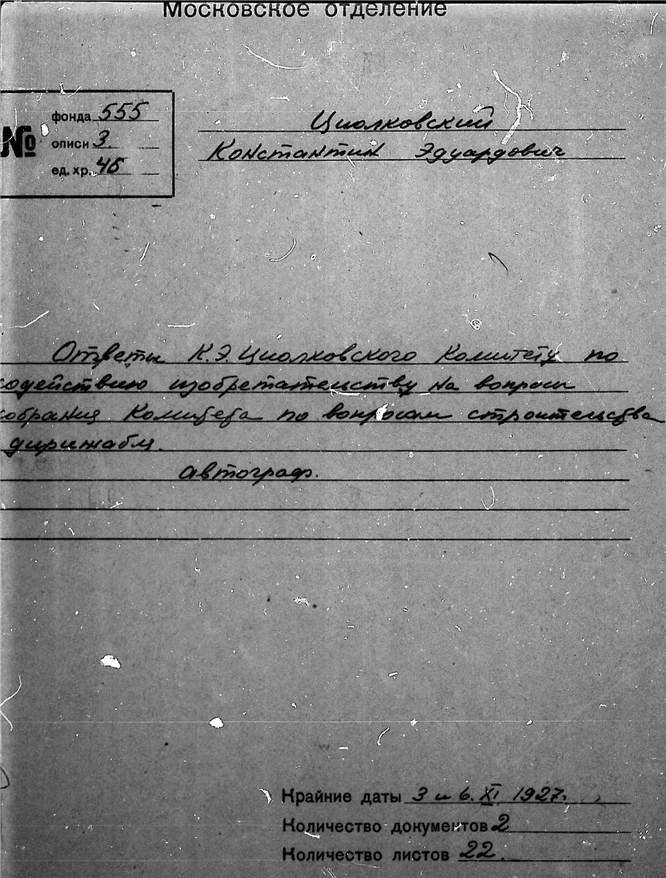 Московское отделение
№
фонда 555
описи 3
ед. хр. 45
Циолковский
Константин Эдуардович
Ответы К.Э. Циолковского Комитету по
содействию изобретательству на вопросы
собрания Комитета по вопросам строительства
дирижабля.
автограф.
Крайние даты 3 и 6. XI 1927.
Количество документов 2
Количество листов 22.